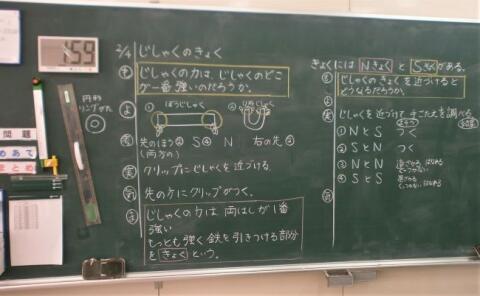 159
2/4 じしゃくのきょく
じしゃくの力は、じしゃくのどこ
が一番強いのだろうか。
円形
リングがた
① ぼうじしゃく ②
先のほう S N 右の先
(両方の)
クリップにじしゃくを近づける
先の方にクリップがつく。
じしゃくの力は両はしが1番
強い
もっとも強く鉄を引きつける部分
をきょくという。
きょくには Nきょく と Sきょく がある。
じしゃくのきょくを近づけると
どうなるだろうか。
じしゃくを近づけて手ごたえを調べる。
① NとS つく
② SとN つく
③ NとN
④ SとS
問題
めあて
まとめ